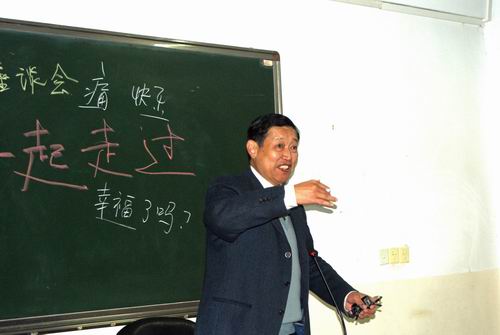 座谈会
痛 快乐
一起走过
幸福了吗?